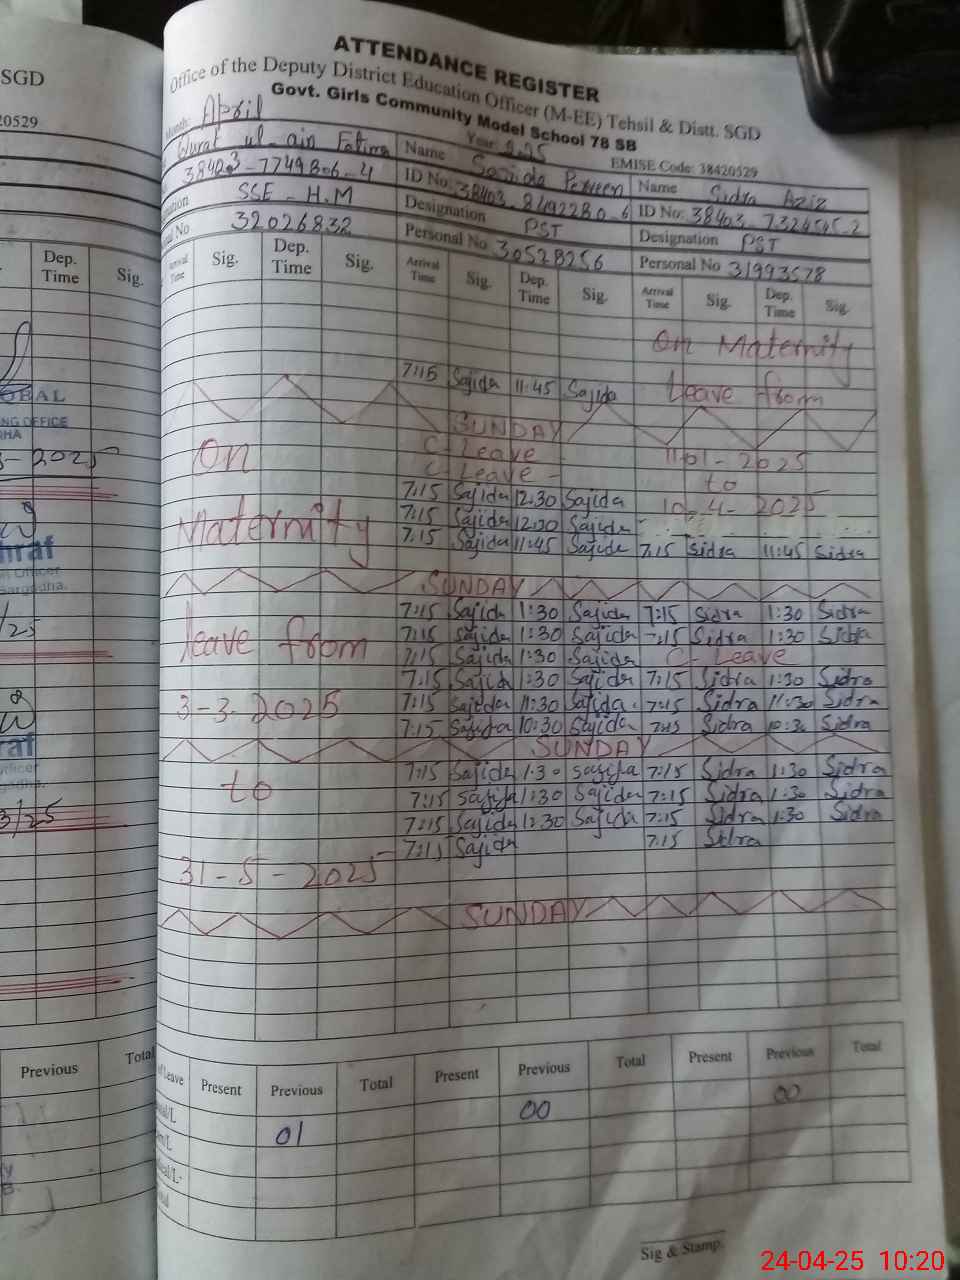 SGD
20529
Dep. Time
Sig.
NG OFFICE
3-2025
hraf
/25
raf
3/25
Previous
Total
ATTENDANCE REGISTER
Office of the Deputy District Education Officer (M-EE) Tehsil & Distt. SGD
Govt. Girls Community Model School 78 SB
Month: April Year: 2025 EMISE Code: 38420529
Qurat ul-ain Fatima Name Sajida Perveen Name Sidra Aziz
38403-7749306-4 ID No. 38403-8492280-6 ID No: 38403-7324545-2
SSE - H.M Designation PST Designation PST
32026832 Personal No 30528256 Personal No 31993578
Arrival Time Sig. Dep. Time Sig. Arrival Time Sig. Dep. Time Sig. Arrival Time Sig. Dep. Time Sig.
On Maternity
7:15 Sajida 11:45 Sajida Leave from
SUNDAY
On C-Leave 11-01-2025
C-Leave - to
7:15 Sajida 12:30 Sajida 10-4-2025
Maternity 7:15 Sajida 12:30 Sajida
7:15 Sajida 11:45 Sajida 7:15 Sidra 11:45 Sidra
SUNDAY
7:15 Sajida 1:30 Sajida 7:15 Sidra 1:30 Sidra
leave from 7:15 Sajida 1:30 Sajida 7:15 Sidra 1:30 Sidra
7:15 Sajida 1:30 Sajida C-Leave
7:15 Sajida 1:30 Sajida 7:15 Sidra 1:30 Sidra
3-3-2025 7:15 Sajida 11:30 Sajida 7:15 Sidra 11:30 Sidra
7:15 Sajida 10:30 Sajida 7:15 Sidra 10:30 Sidra
SUNDAY
to 7:15 Sajida 1:30 Sajida 7:15 Sidra 1:30 Sidra
7:15 Sajida 1:30 Sajida 7:15 Sidra 1:30 Sidra
7:15 Sajida 12:30 Sajida 7:15 Sidra 1:30 Sidra
7:15 Sajida 7:15 Sidra
31-5-2025
SUNDAY
of Leave Present Previous Total Present Previous Total Present Previous Total
01 00 00
Sig & Stamp.
24-04-25 10:20